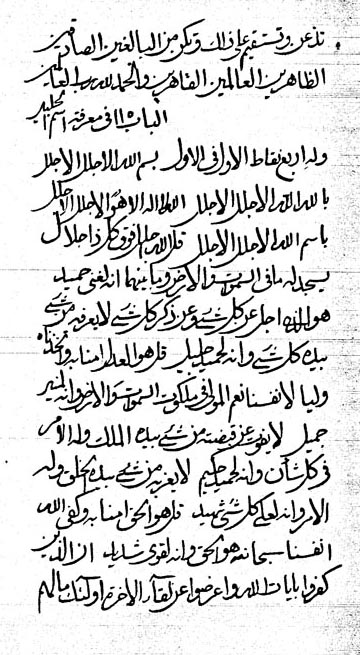 تذعن وتستقيم على ذلك وتكن من البالغين الصادقين
الظاهرين العالمين القاهرين والحمد لله رب العالمين
الباب في معرفة اسم الجليل
وله اربع نقاط الاول في الاول بسم الله الاجلل الاجلل
بالله الله الاجلل الاجلل الله لا اله الا هو الاجلل الاجلل
باسم الله الاجلل الاجلل قل الله اجل فوق كل ذا جلال
يسجد له ما في السموات والارض وما بينهما انه لغني حميد
هو الذي اجل عن كل شيء وعن ذكر كل شيء لا يعرفه من شيء
بيده كل شيء وانه لجميد جليل قل هو العدل امنا به واتخذناه
وليا لانفسنا نعم المولى في ملكوت السموات والارض وانه لمنير
جميل لا يفوت عن قبضته من شيء بيده الملك وله الامر
في كل شأن وانه لحميد حكيم لا يعزب من شيء بيده الخلق وله
الامر وانه لعلى كل شيء شهيد قل هو الحق امنا به وكفى الله
انفسنا سبحانه هو الحق وانه لقوي شديد ان الذين
كفروا بايات الله واعرضوا عن لقاء الاخرة اولئك مالهم